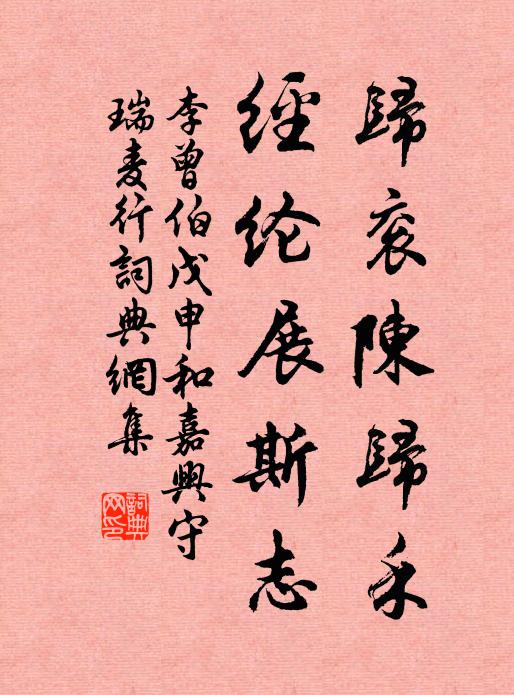 歸衮陳歸禾
經纶展斯志
李曾伯戊申和嘉興守
瑞麦行詞典網集
詞典网印